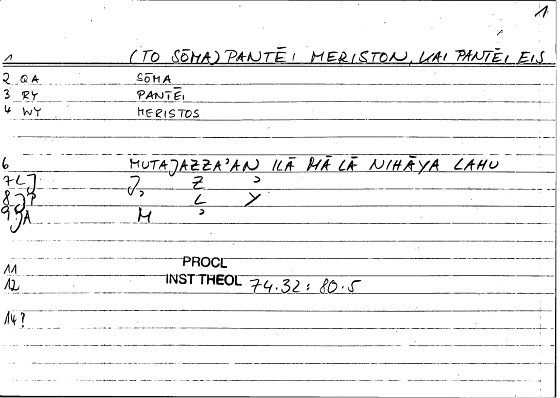 1
1 (TO SŌMA) PANTĒI MERISTON, KAI PANTĒI EIS
2 QA SŌMA
3 RY PANTĒI
4 WY MERISTOS
6 MUTAJAZZA'AN ILĀ MĀ LĀ NIHĀYA LAHU
7 LJ J Z '
8 JP L Y
9 JA M '
11 PROCL
12 INST THEOL 74.32: 80.5
14?